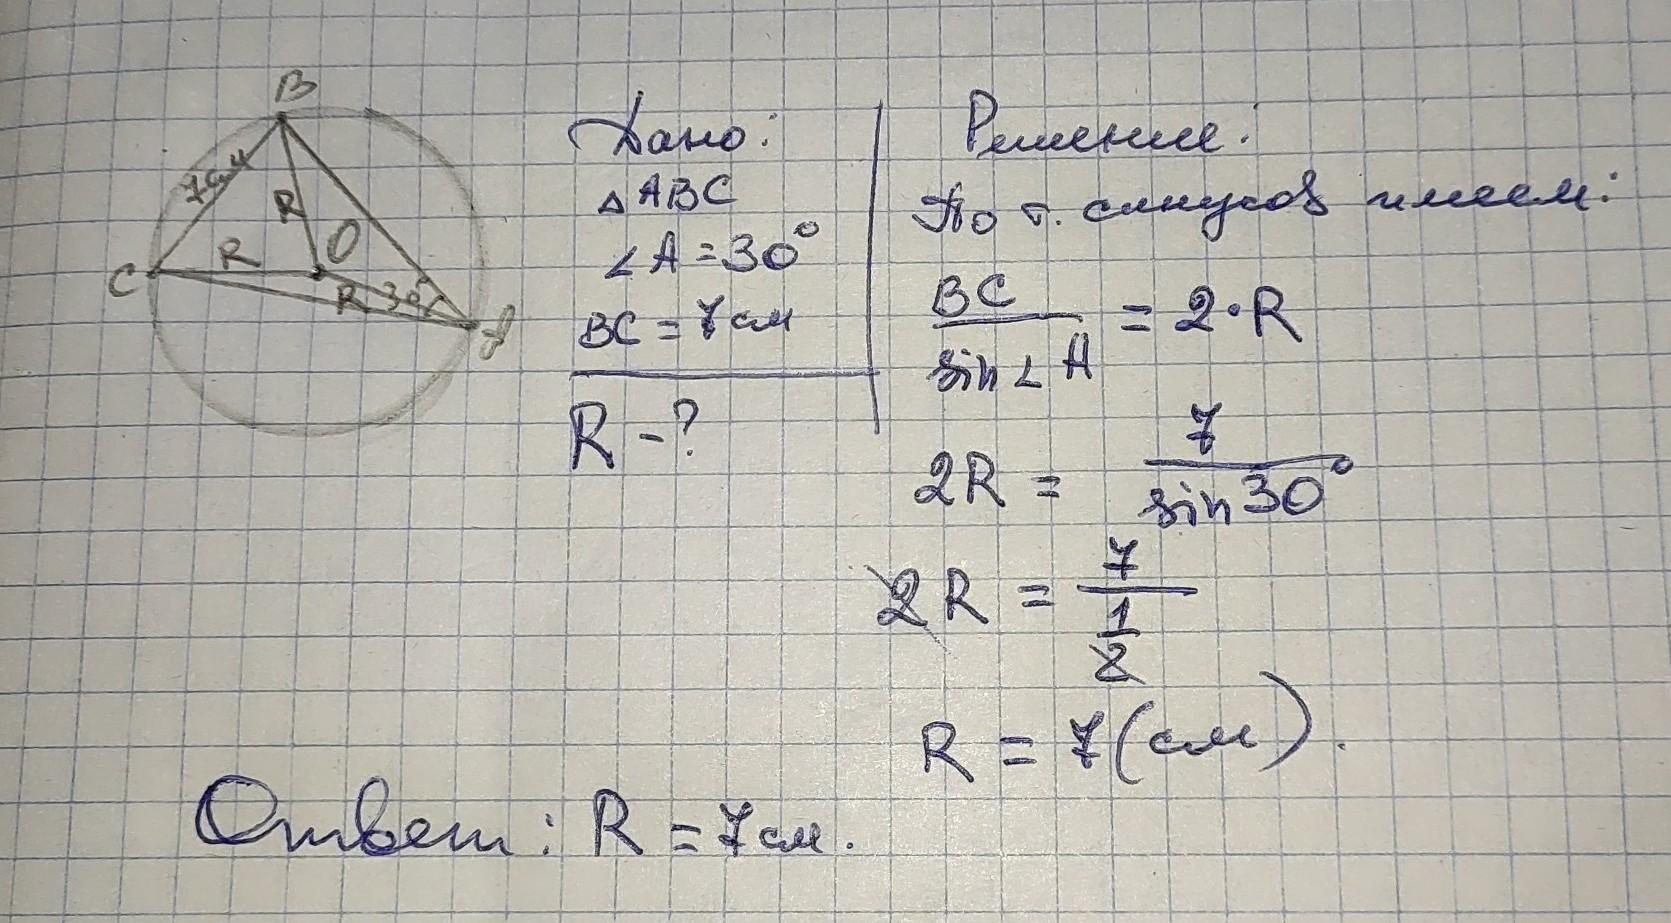 B
7 см
R
R
O
C
R
30°
A
Дано:
△ABC
∠A = 30°
BC = 7 см
R - ?
Решение:
По т. синусов имеем:
BC / sin∠A = 2·R
2R = 7 / sin30°
2R = 7 / 1/2
R = 7 (см).
Ответ: R = 7 см.